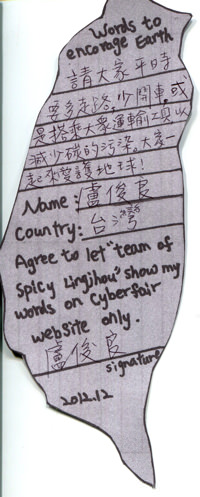 Words to
encorage Earth
請大家平時
要多走路,少開車,或
是搭乘大眾運輸工具,以
減少碳的污染,大家一
起來愛護地球!
Name: 盧俊良
Country: 台灣
Agree to let "team of
Spicy Lingjhou" show my
words on Cyberfair
website only.
盧俊良
signature
2012.12